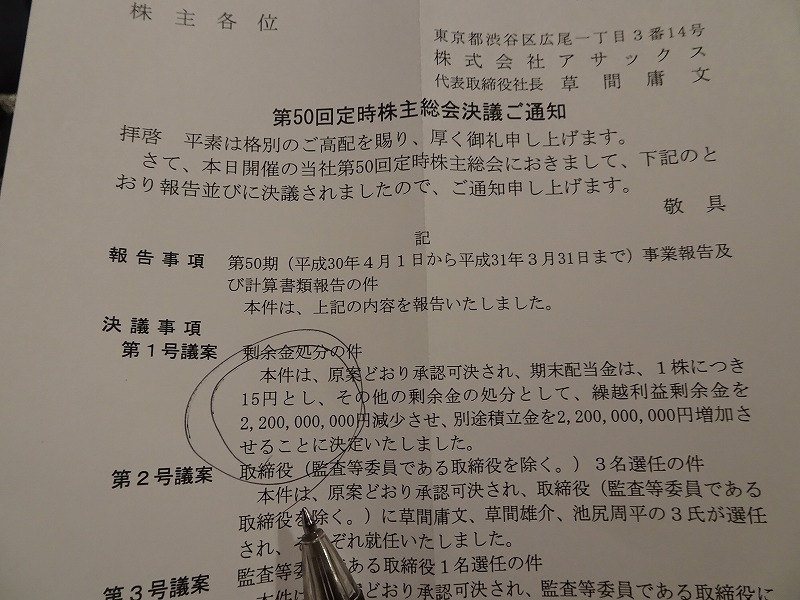 株主各位
東京都渋谷区広尾一丁目3番14号
株式会社アサックス
代表取締役社長 草間庸文
第50回定時株主総会決議ご通知
拝啓 平素は格別のご高配を賜り、厚く御礼申し上げます。
さて、本日開催の当社第50回定時株主総会におきまして、下記のと
おり報告並びに決議されましたので、ご通知申し上げます。
敬具
記
報告事項 第50期（平成30年4月1日から平成31年3月31日まで）事業報告及
び計算書類報告の件
本件は、上記の内容を報告いたしました。
決議事項
第1号議案 剰余金処分の件
本件は、原案どおり承認可決され、期末配当金は、1株につき
15円とし、その他の剰余金の処分として、繰越利益剰余金を
2,200,000,000円減少させ、別途積立金を2,200,000,000円増加さ
せることに決定いたしました。
第2号議案 取締役（監査等委員である取締役を除く。）3名選任の件
本件は、原案どおり承認可決され、取締役（監査等委員である
取締役を除く。）に草間庸文、草間雄介、池尻周平の3氏が選任
され、それぞれ就任いたしました。
第3号議案 監査等委員である取締役1名選任の件
本件は、原案どおり承認可決され、監査等委員である取締役に